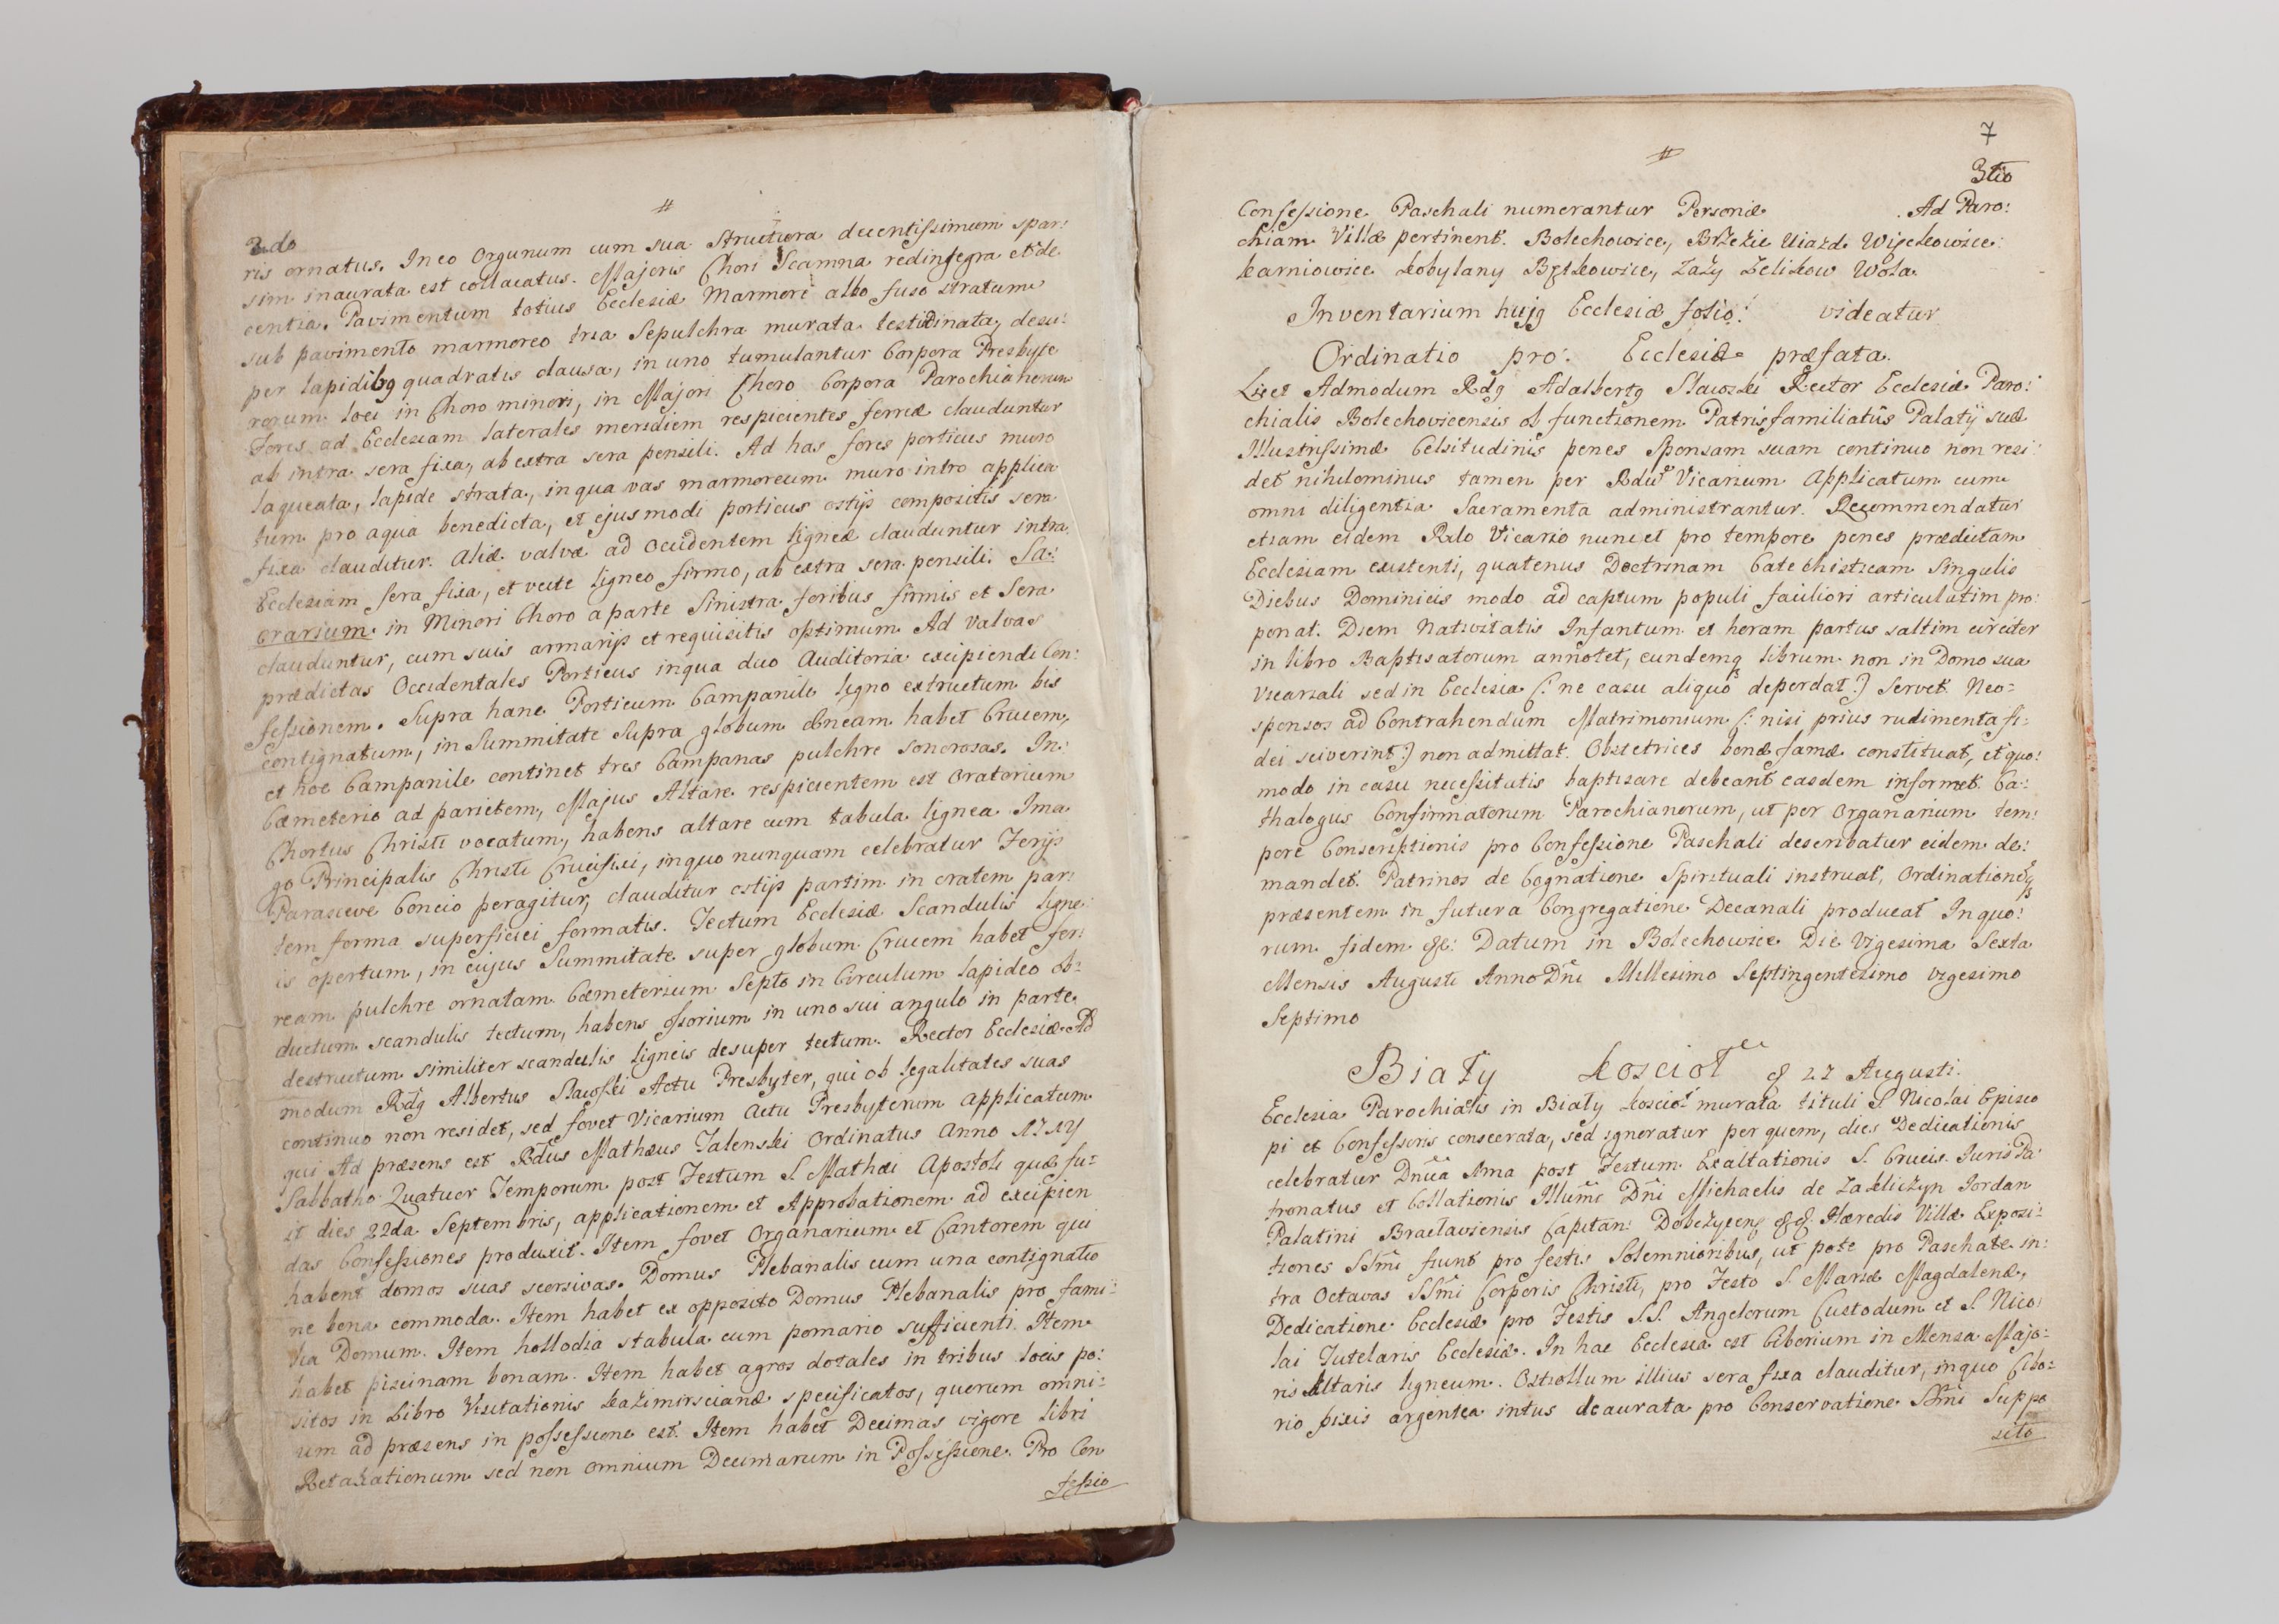 #
2do
ris ornatus. In eo Organum cum sua Structura decentissimum spar:
sim inaurata est collacatus. Majoris Chori Scamna redintegra et de
centia. Pavimentum totius Ecclesiæ Marmore albo fuso stratum
sub pavimento marmoreo tria Sepulchra murata testudinata, desu:
per lapidibg quadratis clausa, in uno tumulantur Corpora Presbyte
rorum loci in Choro minori, in Majori Choro Corpora Parochianorum
Fores ad Ecclesiam laterales meridiem respicientes ferreæ clauduntur
ab intra sera fixa, ab extra sera pensili. Ad has fores porticus muro
laqueata, lapide strata, in qua vas marmoreum muro intro applica
tum pro aqua benedicta, et ejusmodi porticus ostijs compositis sera
fixa clauditur. Aliæ valvæ ad Occidentem ligneæ clauduntur intra
Ecclesiam sera fixa, et vecte ligneo firmo, ab extra sera pensili. Sa:
crarium in Minori Choro a parte Sinistra foribus firmis et Sera
clauduntur, cum suis armarijs et requisitis optimum. Ad valvas
prædictas Occidentales Porticus in qua duo Auditoria excipiendi Con:
fessionem. Supra hanc Porticum Campanile ligno extructum bis
contignatum, in Summitate supra globum æneam habet Crucem,
et hoc Campanile continet tres Campanas pulchre sonorosas. In:
Cæmeterio ad parietem, Majus Altare respicientem est Oratorium
Chortus Christi vocatum, habens altare cum tabula lignea Ima
go Principalis Christi Crucifixi, in quo nunquam celebratur Ferijs
Parasceve Concio peragitur, clauditur ostijs partim in cratem par:
tem forma superficiei formatis. Tectum Ecclesiæ Scandulis ligne:
is opertum, in cujus Summitate super globum Crucem habet fer:
ream pulchre ornatam. Cæmeterium Septo in Circulum lapideo ob:
ductum scandulis tectum, habens ossorium in uno sui angulo in parte
destructum similiter scandulis ligneis desuper tectum. Rector Ecclesiæ Ad
modum Rdg Albertus Slawoski Actu Presbyter, qui ob legalitates suas
continuo non residet, sed fovet Vicarium actu Presbyterum applicatum
qui Ad præsens est Rdus Mathæus Talenski Ordinatus Anno 1714
Sabbatho Quatuor Temporum post Festum S. Mathæi Apostoli quæ fu:
it dies 22da Septembris, applicationem et Approbationem ad excipien
das Confessiones produxit. Item fovet Organarium et Cantorem qui
habent domos suas seorsivas. Domus Plebanalis cum una contignatio
ne bona commoda. Item habet ex opposito Domus Plebanalis pro fami:
lia Domum. Item hollodia stabula cum pomario sufficienti. Item
habet piscinam bonam. Item habet agros dotales in tribus locis po:
sitos in Libro Visitationis Kazimirscianæ specificatos, quorum omni:
um ad præsens in possessione est. Item habet Decimas vigore libri
Retaxationum sed non omnium Decimarum in Possessione. Pro Con
fessio
7
#
3tio
Confessione Paschali numerantur Personæ . Ad Paro:
chiam Villæ pertinent. Bolechowice, Brzezie Uiazd Więckowice:
Karniowice Kobylany Bętkowice, Zazy Zelikow Wola.
Inventarium hujg Ecclesiæ folio: videatur
Ordinatio pro: Ecclesia præfata.
Licet Admodum Rdg Adalbertg Slawoski Rector Ecclesiæ Paro:
chialis Bolechovicensis ob functionem Patrisfamiliatûs Palatÿ suæ
Illustrissimæ Celsitudinis penes Sponsam suam continuo non resi:
det nihilominus tamen per Rdum Vicarium Applicatum cum
omni diligentia Sacramenta administrantur. Recommendatur
etiam eidem Rdo Vicario nunc et pro tempore penes prædictam
Ecclesiam existenti, quatenus Doctrinam Catechisticam Singulis
Diebus Dominicis modo ad captum populi faciliori articulatim pro:
ponat. Diem Nativitatis Infantum et horam partus saltim circiter
in libro Baptisatorum annotet, eundemq librum non in Domo sua
Vicariali sed in Ecclesia (: ne casu aliquo deperdat :) Servet. Neo=
sponsos ad Contrahendum Matrimonium (: nisi prius rudimenta fi:
dei sciverint :) non admittat. Obstetrices bonæ famæ constituat, et quo:
modo in casu necessitatis baptisare debeant easdem informet. Ca:
thalogus Confirmatorum Parochianorum, ut per Organarium tem:
pore Conscriptionis pro Confessione Paschali describatur eidem de:
mandet. Patrinos de Cognatione Spirituali instruat, Ordinationeq
præsentem in futura Congregatione Decanali producat In quo:
rum fidem &c: Datum in Bolechowice Die Vigesima Sexta
Mensis Augusti Anno Dni Millesimo Septingentesimo vigesimo
Septimo
Biały Koscioł & 27 Augusti.
Ecclesia Parochialis in Biały Kosciół murata tituli S. Nicolai Episco
pi et Confessoris consecrata, sed ignoratur per quem, dies Dedicationis
celebratur Dnica 1ma post Festum Exaltationis S. Crucis. Juris Pa:
tronatus et Collationis Illumi Dni Michaelis de Zakliczyn Jordan
Palatini Braclaviensis Capitan: Dobczycen &&. Hæredis Villæ Exposi:
tiones SSmi fiunt pro festis Solemnioribus, ut pote pro Paschate in:
tra Octavas SSmi Corporis Christi, pro Festo S. Mariæ Magdalenæ,
Dedicatione Ecclesiæ pro Festis S.S. Angelorum Custodum et S. Nico:
lai Tutelaris Ecclesiæ. In hac Ecclesia est Ciborium in Mensa Majo:
ris Altaris ligneum. Ostiollum illius sera fixa clauditur, in quo Cibo:
rio pixis argentea intus deaurata pro Conservatione SSmi Suppo
sito